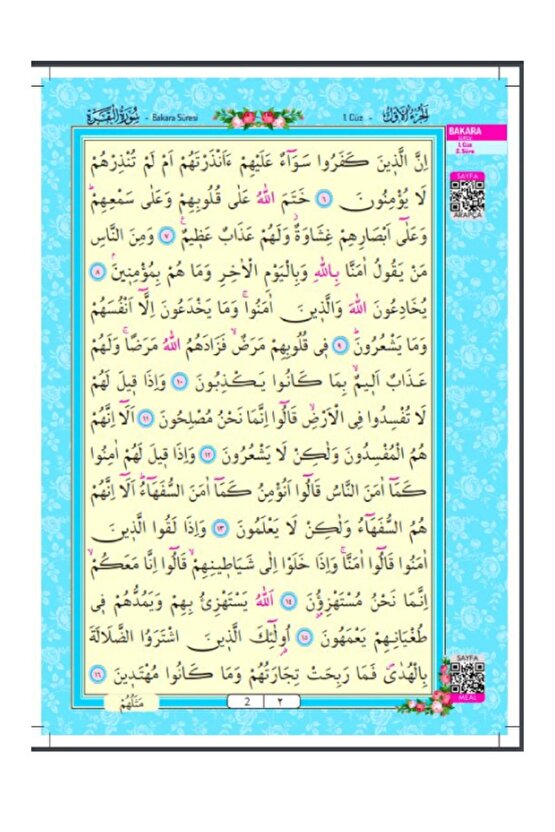 سُورَةُ الْبَقَرَةِ - Bakara Sûresi
1. Cüz - اَلْجُزْءُ الْاَوَّلُ
BAKARA
1. Cüz
2. Sûre
SAYFA
ARAPÇA
اِنَّ الَّذ۪ينَ كَفَرُوا سَوَٓاءٌ عَلَيْهِمْ ءَاَنْذَرْتَهُمْ اَمْ لَمْ تُنْذِرْهُمْ
لَا يُؤْمِنُونَ ﴿٦﴾ خَتَمَ اللّٰهُ عَلٰى قُلُوبِهِمْ وَعَلٰى سَمْعِهِمْۜ
وَعَلٰٓى اَبْصَارِهِمْ غِشَاوَةٌۘ وَلَهُمْ عَذَابٌ عَظ۪يمٌ۟ ﴿٧﴾ وَمِنَ النَّاسِ
مَنْ يَقُولُ اٰمَنَّا بِاللّٰهِ وَبِالْيَوْمِ الْاٰخِرِ وَمَا هُمْ بِمُؤْمِن۪ينَۘ ﴿٨﴾
يُخَادِعُونَ اللّٰهَ وَالَّذ۪ينَ اٰمَنُواۚ وَمَا يَخْدَعُونَ اِلَّٓا اَنْفُسَهُمْ
وَمَا يَشْعُرُونَۜ ﴿٩﴾ ف۪ي قُلُوبِهِمْ مَرَضٌۙ فَزَادَهُمُ اللّٰهُ مَرَضًاۚ وَلَهُمْ
عَذَابٌ اَل۪يمٌۙ بِمَا كَانُوا يَكْذِبُونَ ﴿١٠﴾ وَاِذَا ق۪يلَ لَهُمْ
لَا تُفْسِدُوا فِي الْاَرْضِۙ قَالُٓوا اِنَّمَا نَحْنُ مُصْلِحُونَ ﴿١١﴾ اَلَٓا اِنَّهُمْ
هُمُ الْمُفْسِدُونَ وَلٰكِنْ لَا يَشْعُرُونَ ﴿١٢﴾ وَاِذَا ق۪يلَ لَهُمْ اٰمِنُوا
كَمَٓا اٰمَنَ النَّاسُ قَالُٓوا اَنُؤْمِنُ كَمَٓا اٰمَنَ السُّفَهَٓاءُۜ اَلَٓا اِنَّهُمْ
هُمُ السُّفَهَٓاءُ وَلٰكِنْ لَا يَعْلَمُونَ ﴿١٣﴾ وَاِذَا لَقُوا الَّذ۪ينَ
اٰمَنُوا قَالُٓوا اٰمَنَّاۚ وَاِذَا خَلَوْا اِلٰى شَيَاط۪ينِهِمْۙ قَالُٓوا اِنَّا مَعَكُمْۙ
اِنَّمَا نَحْنُ مُسْتَهْزِؤُ۫نَ ﴿١٤﴾ اَللّٰهُ يَسْتَهْزِئُ بِهِمْ وَيَمُدُّهُمْ ف۪ي
طُغْيَانِهِمْ يَعْمَهُونَ ﴿١٥﴾ اُو۬لٰٓئِكَ الَّذ۪ينَ اشْتَرَوُا الضَّلَالَةَ
بِالْهُدٰىۖ فَمَا رَبِحَتْ تِجَارَتُهُمْ وَمَا كَانُوا مُهْتَد۪ينَ ﴿١٦﴾
SAYFA
MEAL
مَثَلُهُمْ
2 ٢